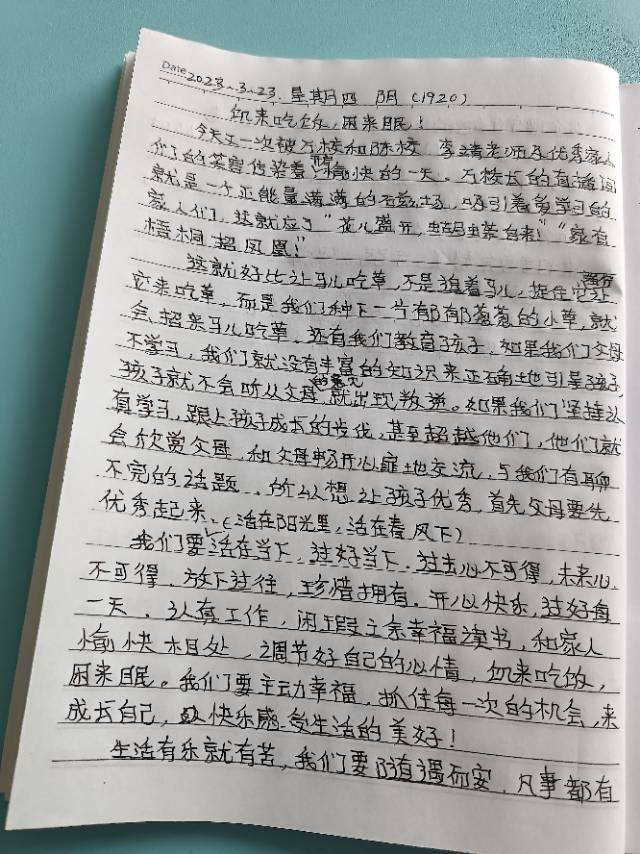 Date 2023.3.23. 星期四 阴 (1920)
饥来吃饭,困来眠!
今天又一次被万校和陈校 李靖老师及优秀家人
们了的笑容传染着,开启愉快的一天。万校长的直播间
就是一个正能量满满的磁场,吸引着爱学习的
家人们,这就应了“花儿盛开,蝴蝶自来!”“家有
梧桐招凤凰!”
这就好比让马儿吃草,不是狼着马儿,拽住它让
它来吃草,而是我们种下一片郁郁葱葱的小草,就
会招来马儿吃草,还有我们教育孩子,如果我们父母
不学习,我们就没有丰富的知识来正确地引导孩子,
孩子就不会听从父母的意见,就出现叛逆。如果我们坚持认
真学习,跟上孩子成长的步伐,甚至超越他们,他们就
会欣赏父母,和父母畅开心扉地交流,与我们有聊
不完的话题,所以想让孩子优秀,首先父母要先
优秀起来、(活在阳光里,活在春风下)
我们要活在当下,过好当下,过去心不可得,未来心
不可得,放下过往,珍惜拥有,开心快乐,过好每
一天,认真工作,闲暇之余幸福读书,和家人
愉快相处,调节好自己的心情,饥来吃饭,
困来眠。我们要主动幸福,抓住每一次的机会,来
成长自己,快乐感受生活的美好!
生活有乐就有苦,我们要随遇而安,凡事都有